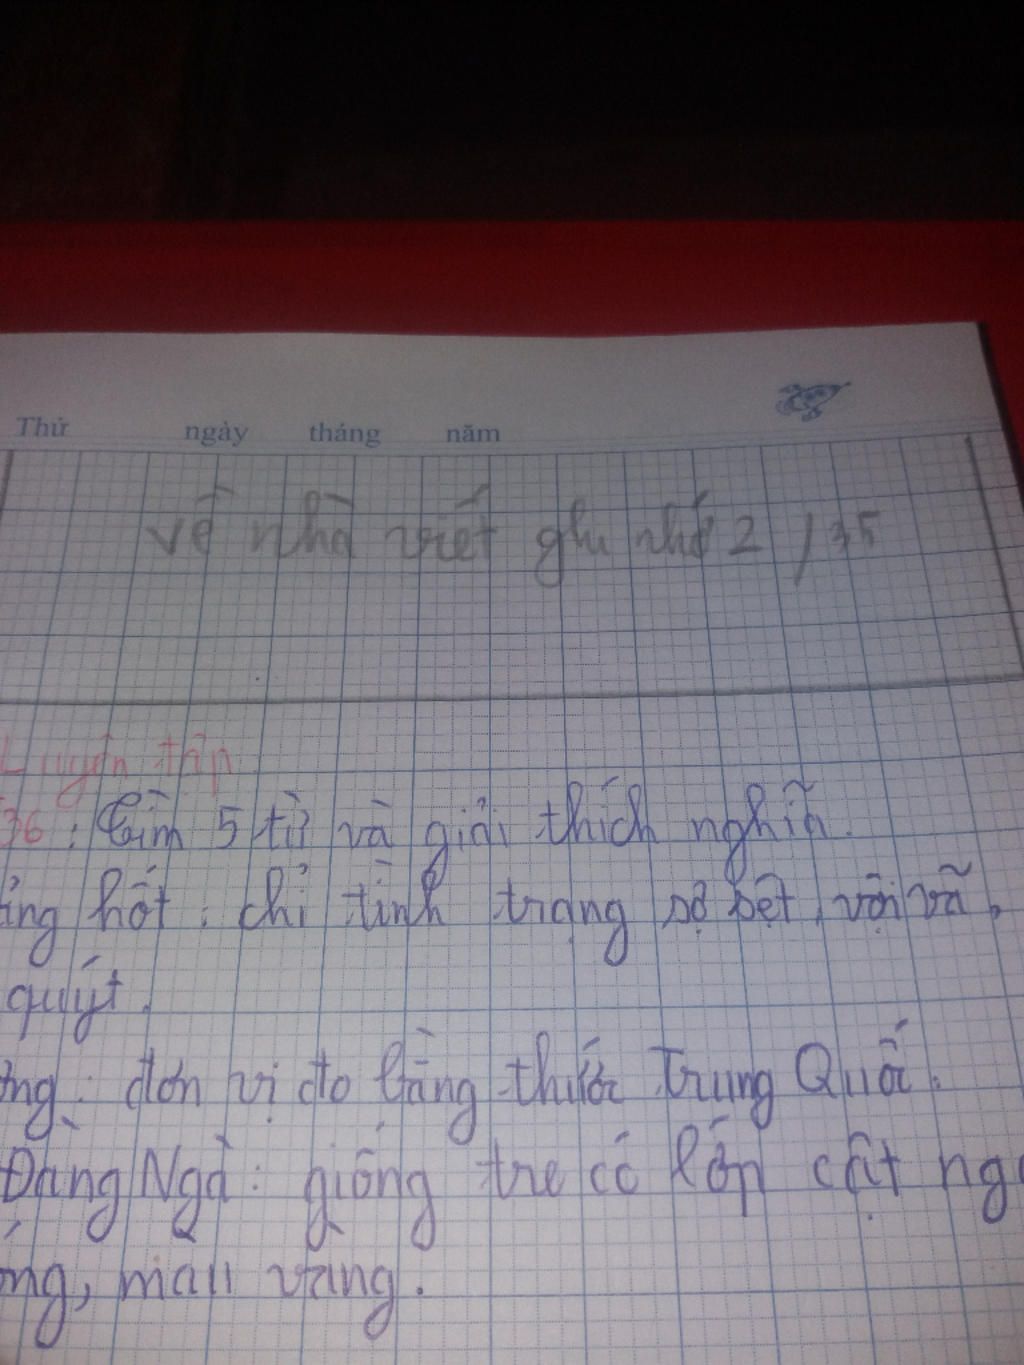 Thứ ngày tháng năm
về nhà viết ghi nhớ 2 / 35
Luyện tập
36 : Tìm 5 từ và giải thích nghĩa.
hốt : chỉ tình trạng sợ sệt, vội vã,
quýt.
đơn vị đo bằng thước Trung Quốc.
Đằng Ngà : giống tre có lớp cật
màu vàng.